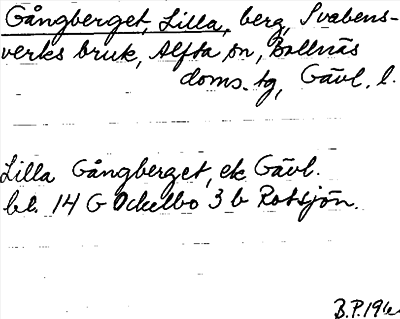 Gångberget, Lilla, berg, Svabens-
verks bruk, Alfta sn, Bollnäs
doms. tg, Gävl. l.
Lilla Gångberget, ek Gävl.
bl. 14 G Ockelbo 3 b Rotsjön.
B.P.196